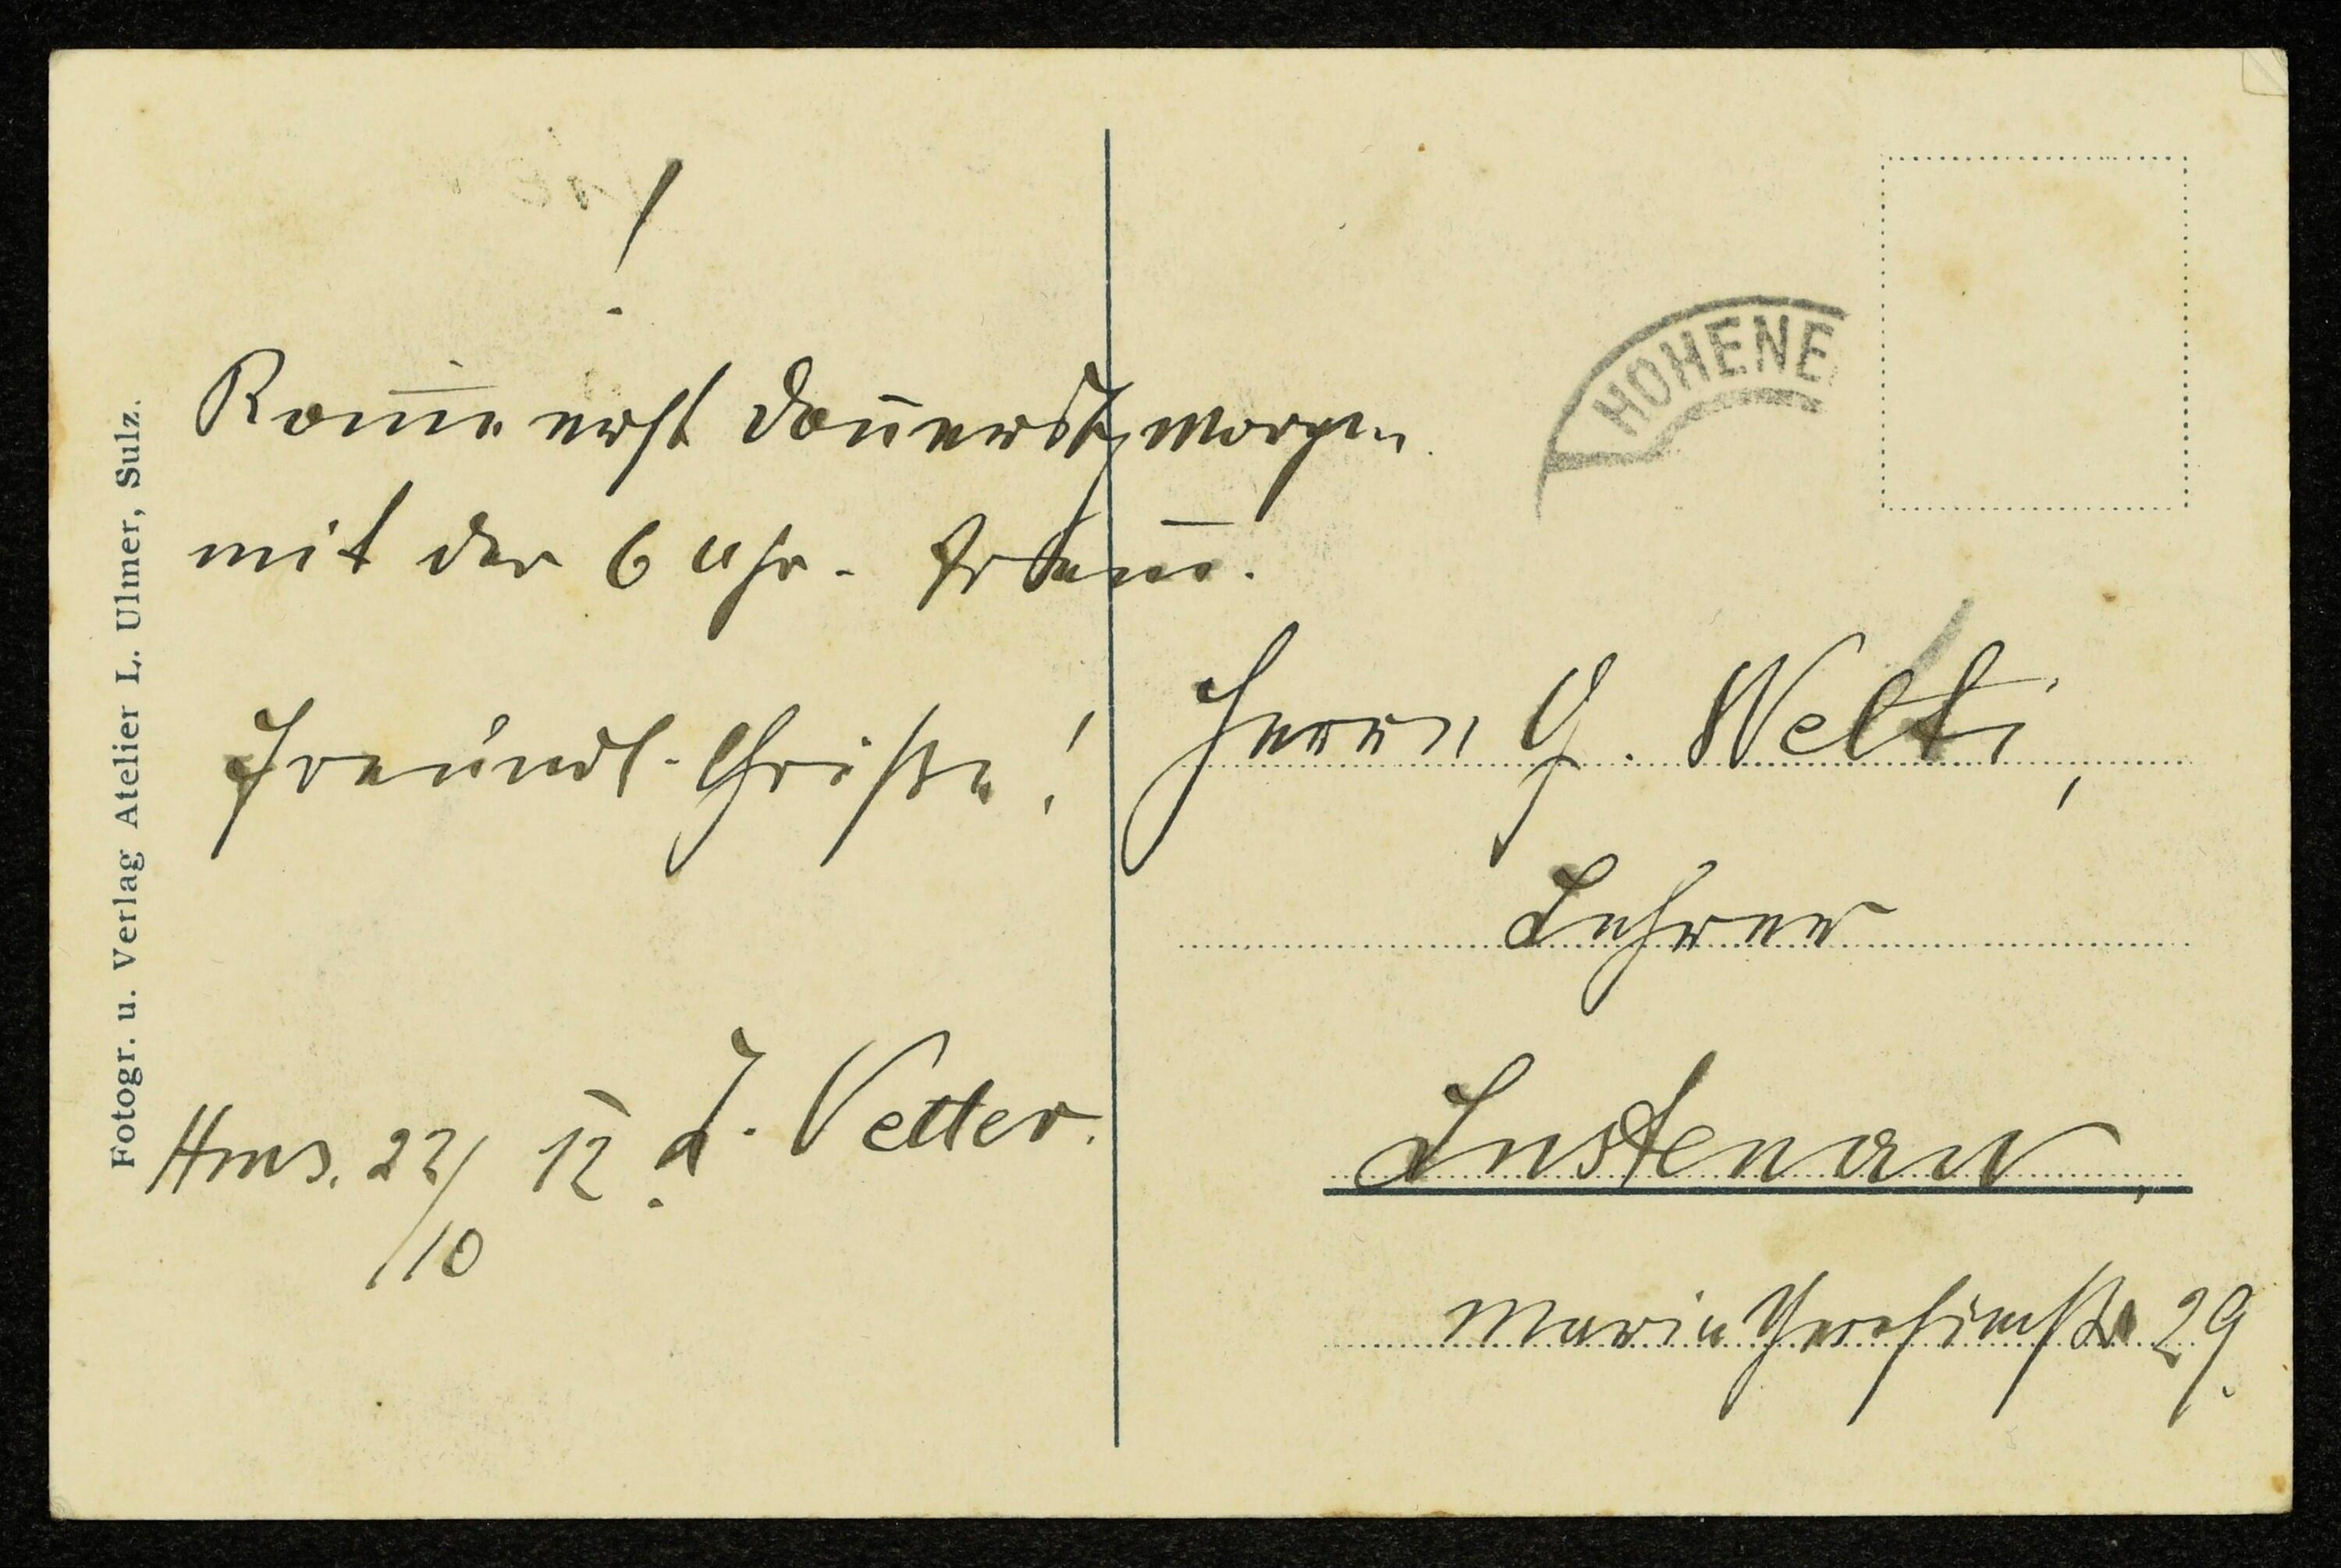 !
Kom̅e erst Don̅erstg morgen
mit der 6 Uhr-
Freundl. Grüße!
Hms. 22/10 12 J. Vetter.
HOHENE
Herrn G. Welti,
Lehrer
Lustenau,
Maria Theresienstr 29.
Fotogr. u. Verlag Atelier L. Ulmer, Sulz.